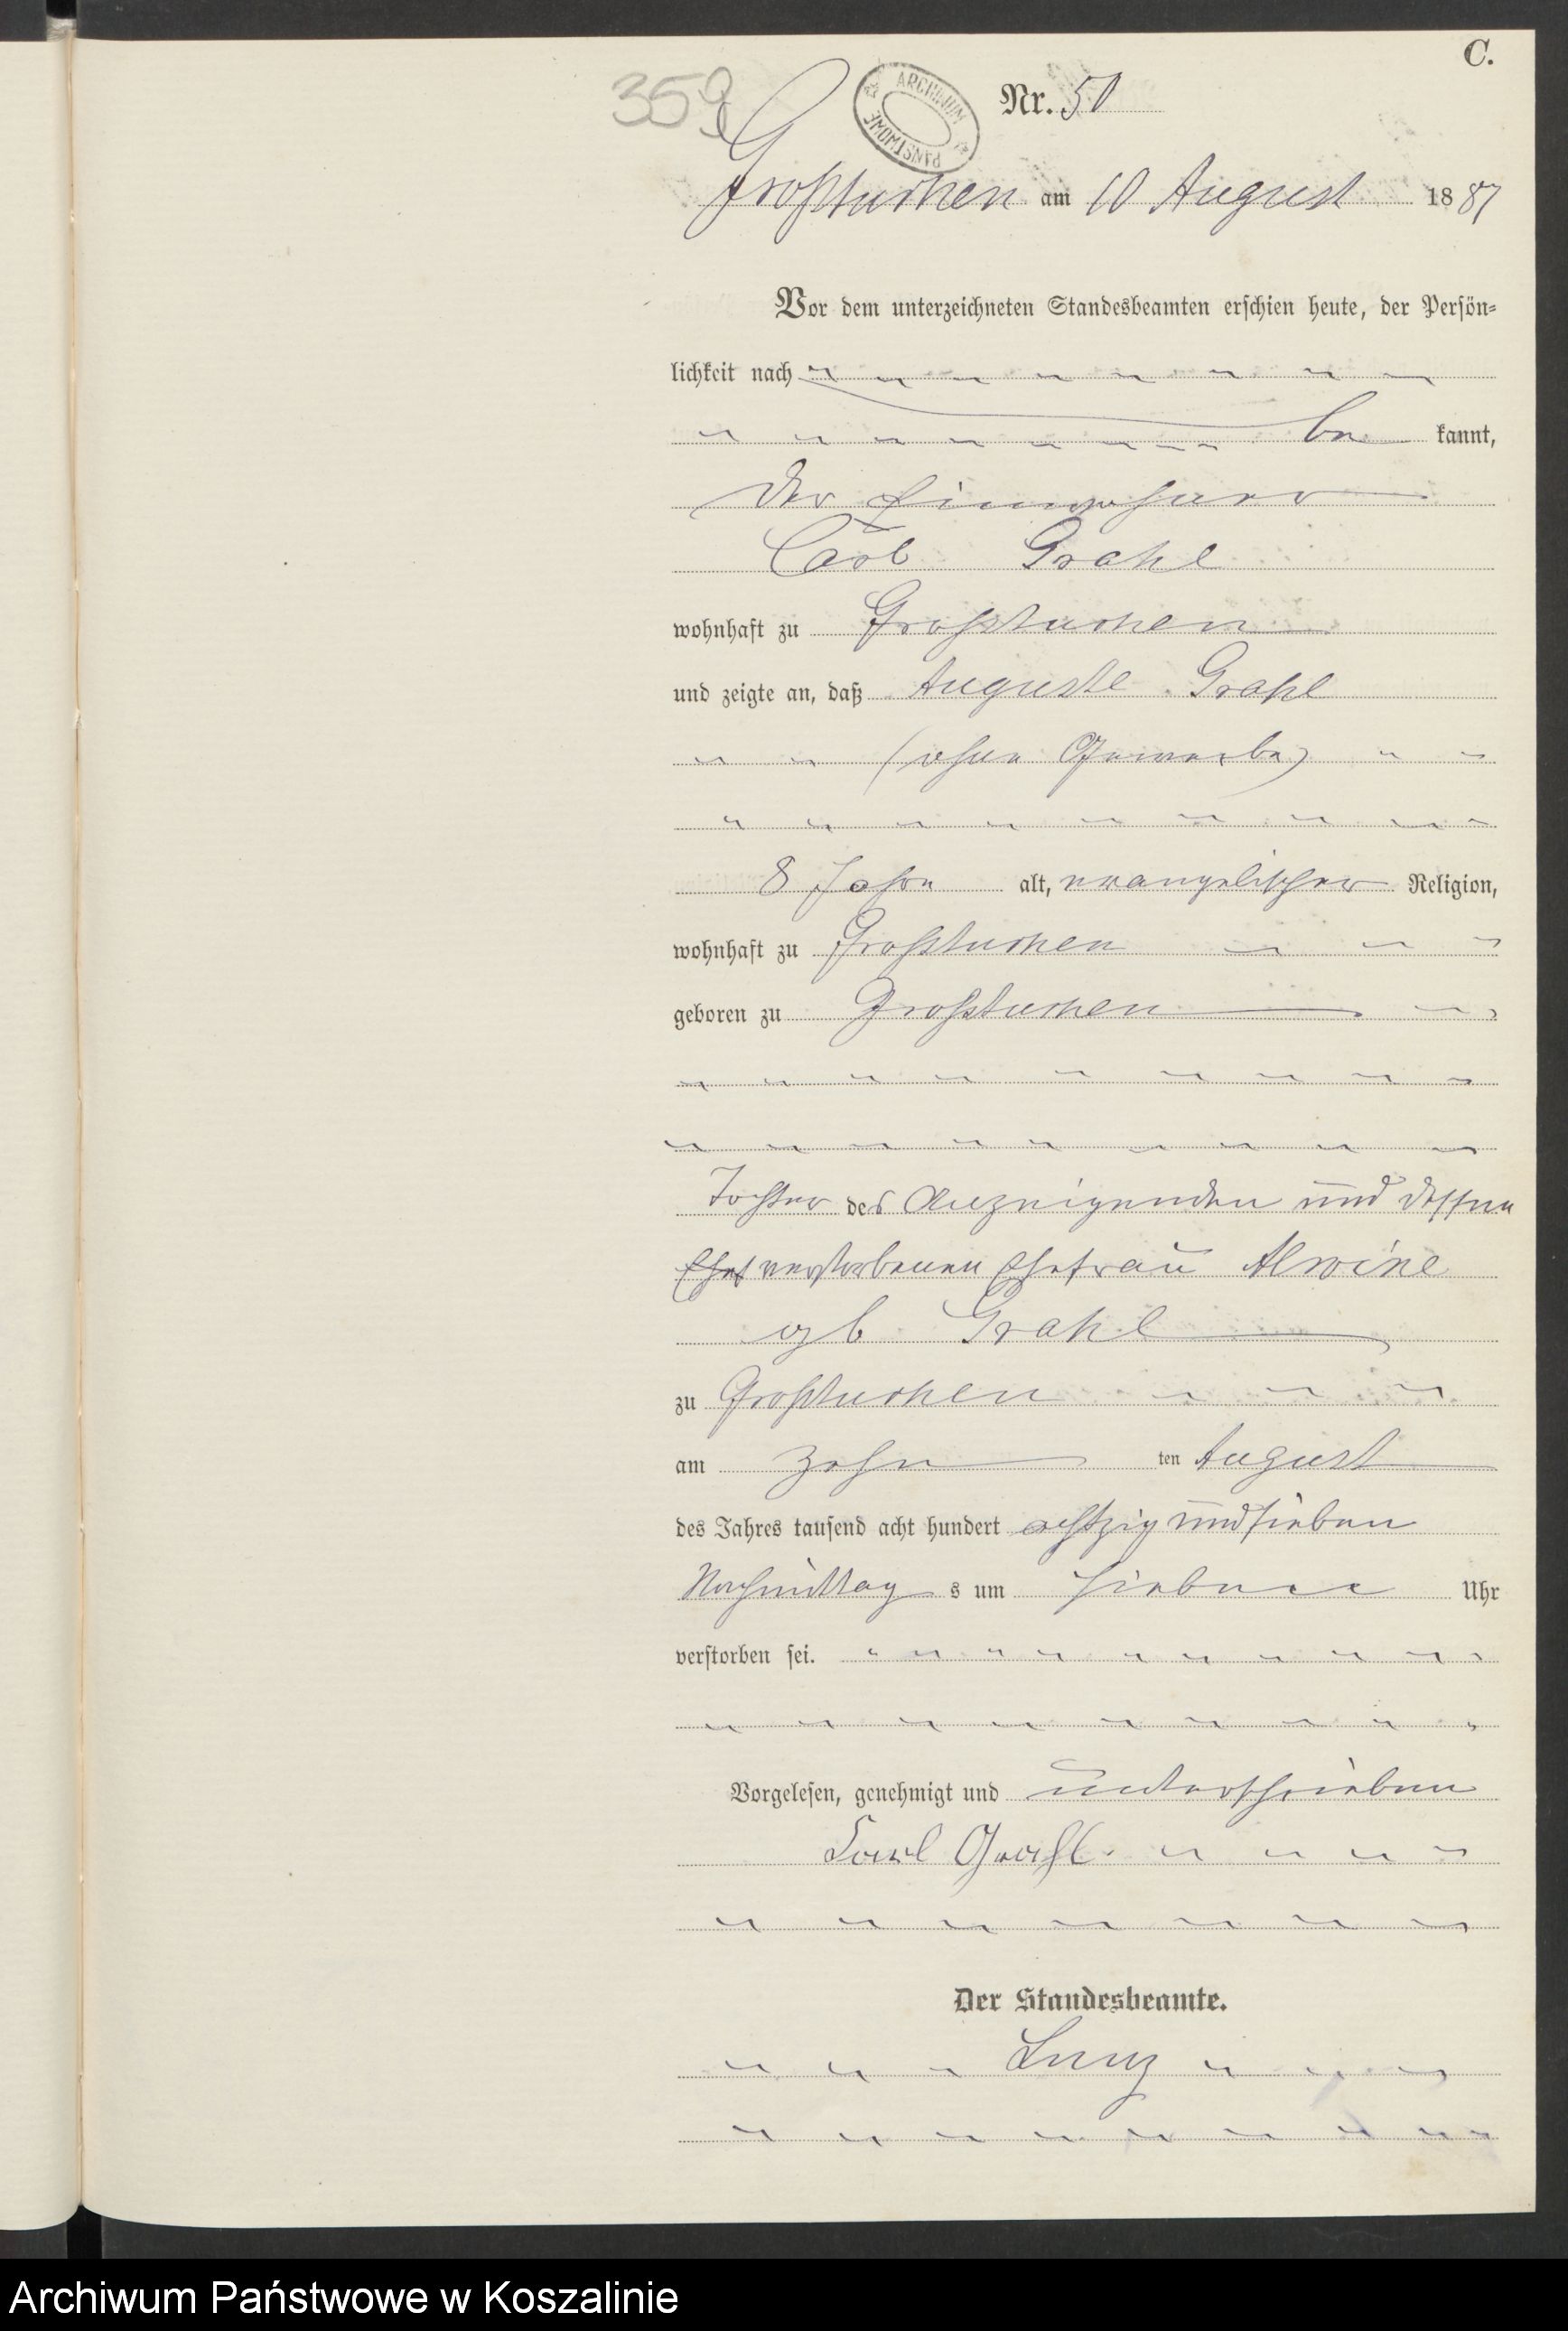 C.
359
ARCHIWUM PAŃSTWOWE
Nr. 50
Großtuchen am 10 August 1887
Vor dem unterzeichneten Standesbeamten erschien heute, der Persön-
lichkeit nach
be kannt,
der
Carl Grahl
wohnhaft zu Großtuchen
und zeigte an, daß Auguste Grahl
(ohne Gewerbe)
8 Jahre alt, evangelischer Religion,
wohnhaft zu Großtuchen
geboren zu Großtuchen
Tochter des Anzeigenden und dessen
verstorbenen Ehefrau Alwine
geb Grahl
zu Großtuchen
am zehn ten August
des Jahres tausend acht hundert achtzig und sieben
Nachmittag s um sieben Uhr
verstorben sei.
Vorgelesen, genehmigt und unterschrieben
Carl Grahl.
Der Standesbeamte.
Archiwum Państwowe w Koszalinie